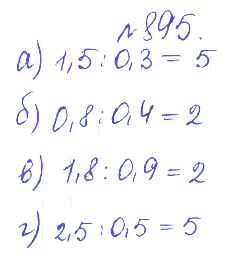 №895.
а) 1,5 : 0,3 = 5
б) 0,8 : 0,4 = 2
в) 1,8 : 0,9 = 2
г) 2,5 : 0,5 = 5